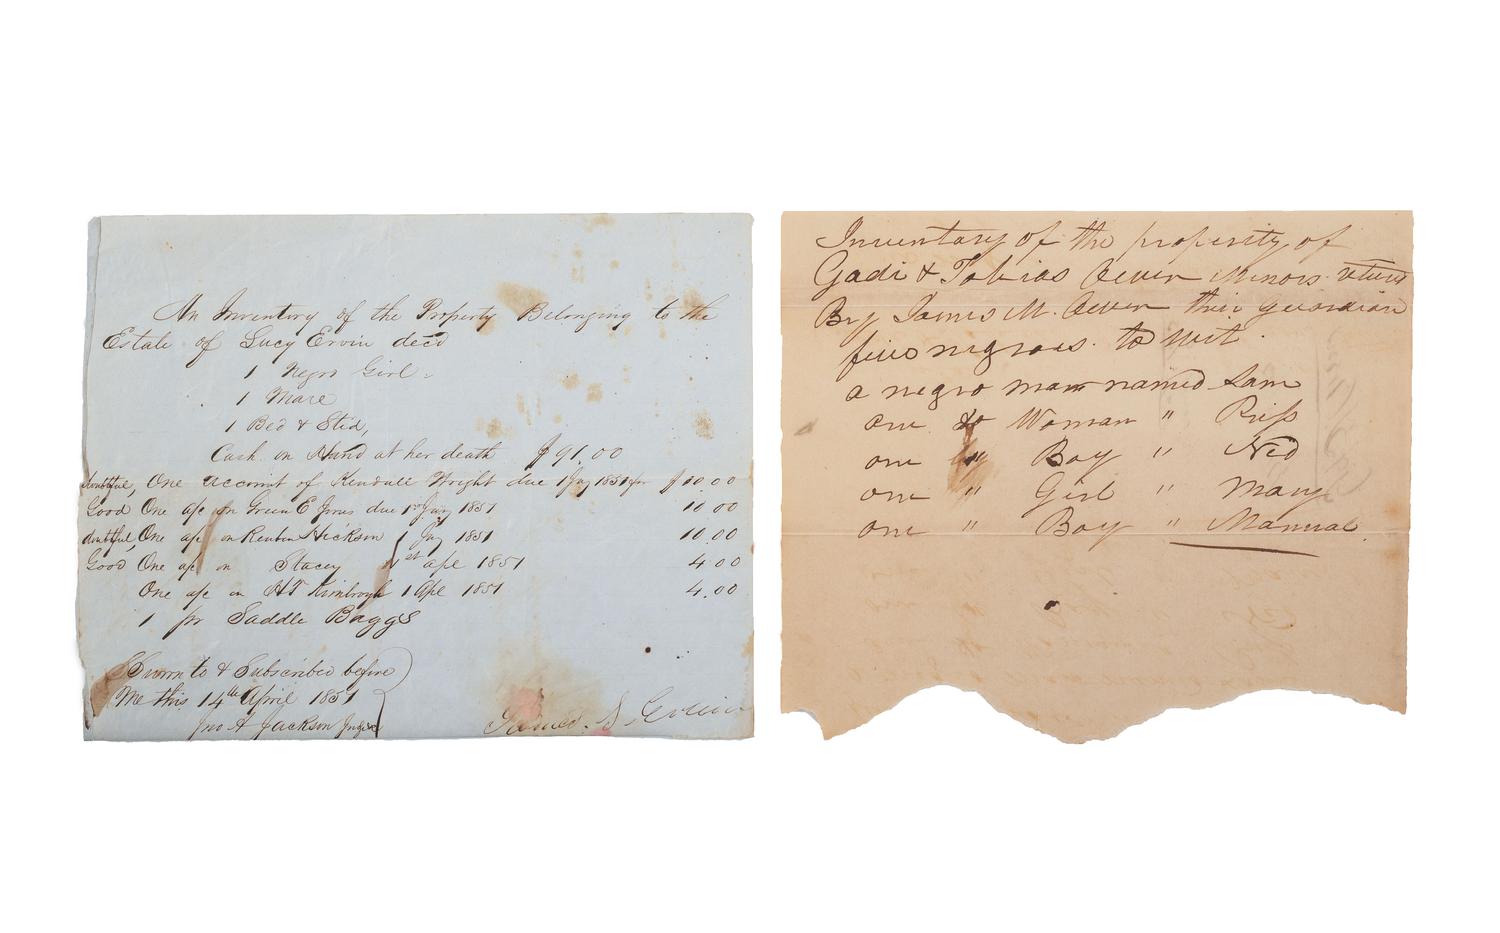 An Inventory of the Property Belonging to the
Estate of Lucy Ervin decd
1 Negro Girl.
1 Mare
1 Bed & Sted,
Cash on Hand at her death $91.00
doubtful, One account of Kendall Wright due 1 Jay 1851 for $10.00
Good One a/c on Green E Jones due 1st Jany 1851 10 00
doubtful, One a/c on Reuben Hickson 1 Jay 1851 10.00
Good One a/c on Stacey 1st Apl 1851 4.00
One a/c on Kimbrogh 1 Apl 1851 4.00
1 pr Saddle Baggs
Sworn to & Subscribed before
Me this 14th April 1851
Jno A Jackson
James S. Ervin
Inventory of the property of
Gadi & Tobias Minors return
By James M. their guardian
five negroes. to wit.
a negro man named Sam
one do Woman " Priss
one " Boy " Ned
one " Girl " Mary
one " Boy " Manual